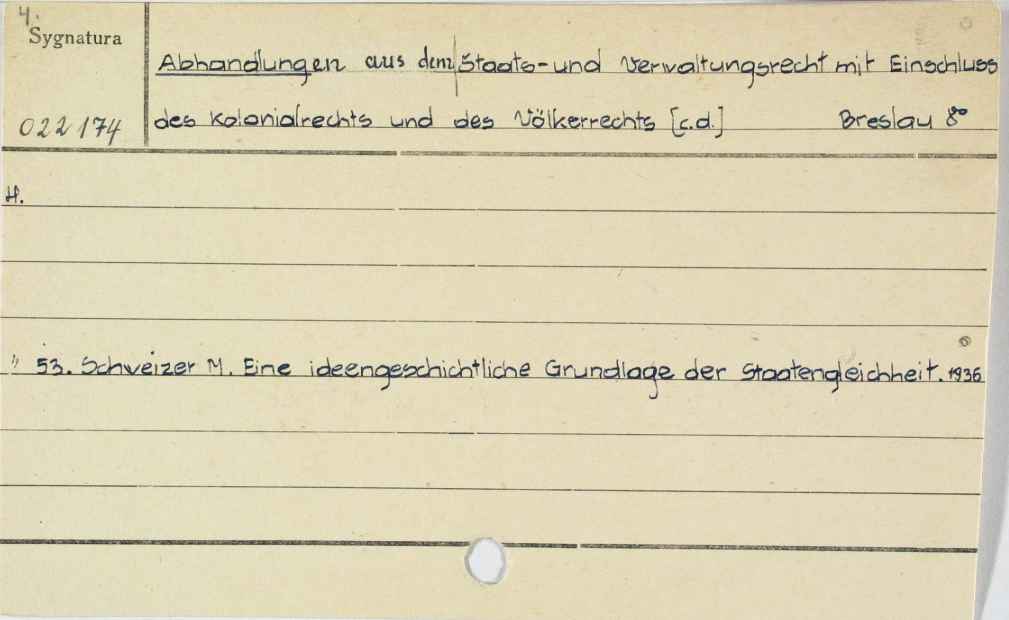 4.
Sygnatura
Abhandlungen aus dem Staats-und Verwaltungsrecht mit Einschluss
022174
des Kolonialrechts und des Völkerrechts [c.d.] Breslau 8°
H.
" 53. Schweizer M. Eine ideengeschichtliche Grundlage der Staatengleichheit. 1936